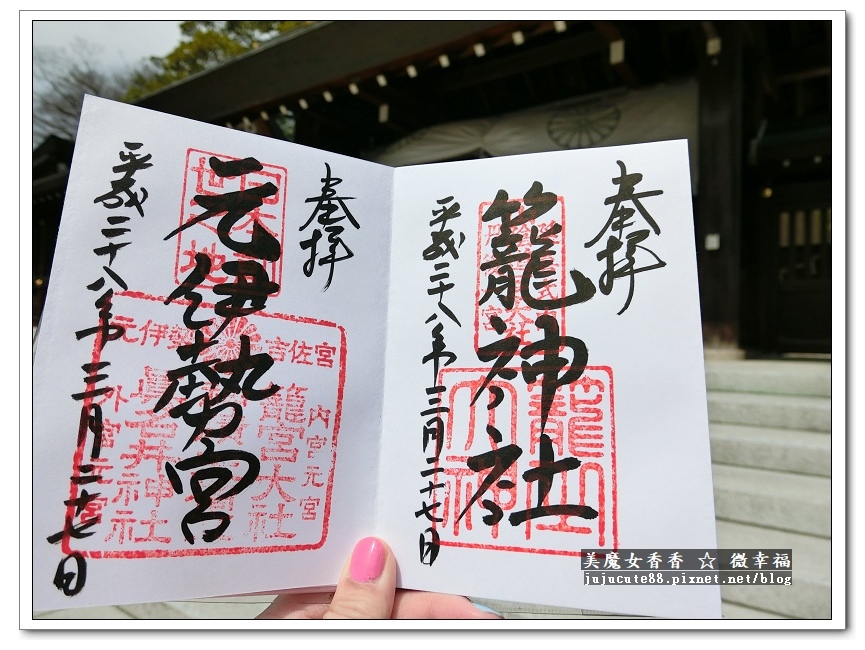 奉拝
籠神社
平成二十八年三月二十七日
奉拝
元伊勢宮
平成二十八年三月二十七日
元伊勢
吉佐宮
内宮元宮
籠宮大社
眞名井神社
外宮元宮
美魔女香香 ☆ 微幸福
jujucute88.pixnet.net/blog